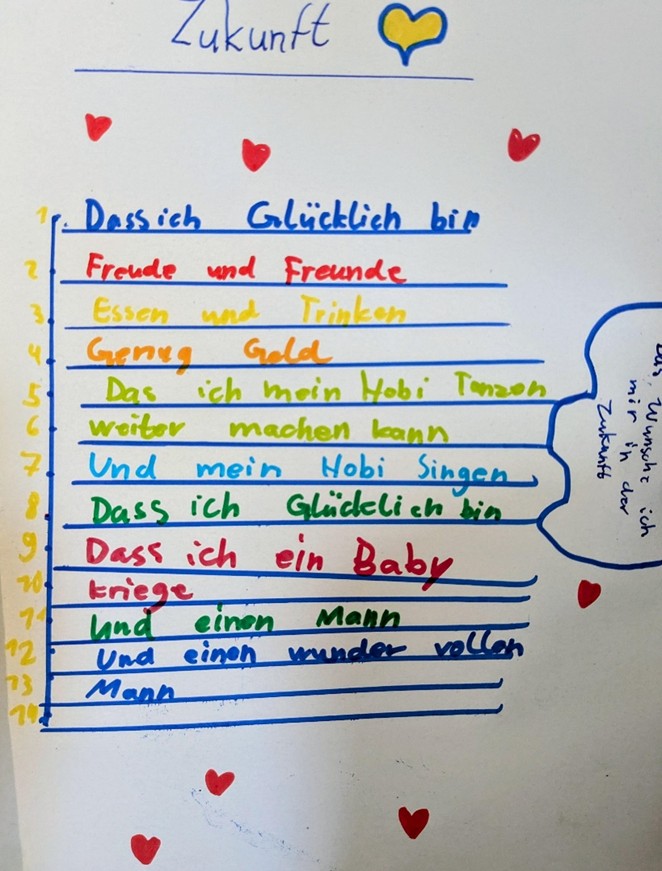 Zukunft
1 Dass ich Glücklich bin
2 Freude und Freunde
3 Essen und Trinken
4 Genug Geld
5 Das ich mein Hobi Tanzen
6 weiter machen kann
7 Und mein Hobi Singen
8 Dass ich Glücklich bin
9 Dass ich ein Baby
10 kriege
11 Und einen Mann
12 Und einen wunder vollen
13 Mann
14
Wünscht ich
mir in der
Zukunft